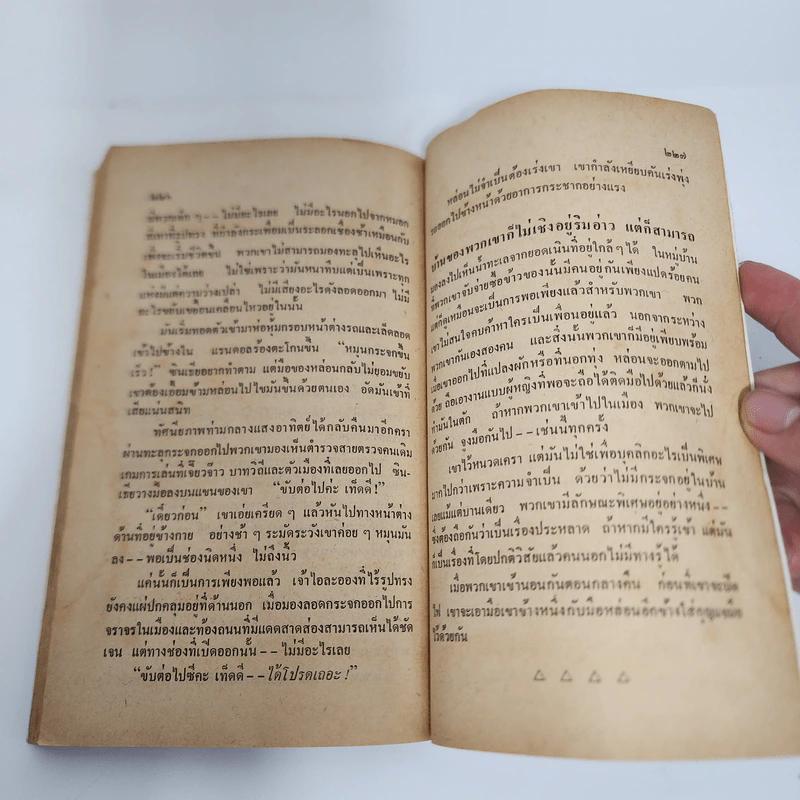 ที่ทรงพลัก ๆ -- ไม่มีอะไรเลย ไม่มีอะไรนอกไปจากหมอก
ที่กำลังกระเพื่อมเป็นระลอกเชื่องช้าเหมือนกับ
เพิ่งจะเริ่มชีวิตขึ้น พวกเขาไม่สามารถมองทะลุไปเห็นอะไร
ในเมืองได้เลย ไม่ใช่เพราะว่ามันหนาทึบแต่เป็นเพราะทุก
แห่งมีแต่ความว่างเปล่า ไม่มีเสียงอะไรดังลอดออกมา ไม่มี
อะไรขยับเขยื้อนเคลื่อนไหวอยู่ในนั้น
มันเริ่มทอดตัวเข้ามาห่อหุ้มกรอบหน้าต่างรถและเล็ดลอด
เข้าไปข้างใน แรนดอลร้องตะโกนขึ้น “หมุนกระจกขึ้น
เร็ว !” ซินเธียอยากทำตาม แต่มือของหล่อนกลับไม่ยอมขยับ
เขาต้องเอื้อมข้ามหล่อนไปไขมันขึ้นด้วยตนเอง อัดมันเข้าที่
เสียแน่นสนิท
ทัศนียภาพท่ามกลางแสงอาทิตย์ได้กลับคืนมาอีกครา
ผ่านทะลุกระจกออกไปพวกเขามองเห็นตำรวจสายตรวจคนเดิม
เกมการเล่นที่เจี๊ยวจ๊าว บาทวิถีและตัวเมืองที่เลยออกไป ซิน-
เธียวางมือลงบนแขนของเขา “ขับต่อไปค่ะ เท็ดดี้ !”
“เดี๋ยวก่อน” เขาเอ่ยเครียด ๆ แล้วหันไปทางหน้าต่าง
ด้านที่อยู่ข้างกาย อย่างช้า ๆ ระมัดระวังเขาค่อย ๆ หมุนมัน
ลง -- พอเป็นช่องนิดหนึ่ง ไม่ถึงนิ้ว
แค่นั้นก็เป็นการเพียงพอแล้ว เจ้าไอละอองที่ไร้รูปทรง
ยังคงแผ่ปกคลุมอยู่ที่ด้านนอก เมื่อมองลอดกระจกออกไปการ
จราจรในเมืองและท้องถนนที่มีแดดสาดส่องสามารถเห็นได้ชัด
เจน แต่ทางช่องที่เปิดออกนั้น -- ไม่มีอะไรเลย
“ขับต่อไปซีคะ เท็ดดี้ -- ได้โปรดเถอะ !”
๒๒๗
หล่อนไม่จำเป็นต้องเร่งเขา เขากำลังเหยียบคันเร่งพุ่ง
รถออกไปข้างหน้าด้วยอาการกระชากอย่างแรง
บ้านของพวกเขาก็ไม่เชิงอยู่ริมอ่าว แต่ก็สามารถ
มองลงไปเห็นน้ำทะเลจากยอดเนินที่อยู่ใกล้ๆ ได้ ในหมู่บ้าน
ที่พวกเขาจับจ่ายซื้อข้าวของนั้นมีคนอยู่กันเพียงแปดร้อยคน
แต่ก็ดูเหมือนจะเป็นการพอเพียงแล้วสำหรับพวกเขา พวก
เขาไม่สนใจคบค้าหาใครเป็นเพื่อนอยู่แล้ว นอกจากระหว่าง
พวกเขากันเองสองคน และสิ่งนั้นพวกเขาก็มีอยู่เพียบพร้อม
เมื่อเขาออกไปที่แปลงผักหรือที่นอกทุ่ง หล่อนจะออกตามไป
ด้วย ถือเอางานแบบผู้หญิงที่พอจะถือได้ติดมือไปด้วยแล้วก็นั่ง
ทำมันในตัก ถ้าหากพวกเขาเข้าไปในเมือง พวกเขาจะไป
ด้วยกัน จูงมือกันไป -- เช่นนี้ทุกครั้ง
เขาไว้หนวดเครา แต่มันไม่ใช่เพื่อบุคลิกอะไรเป็นพิเศษ
มากไปกว่าเพราะความจำเป็น ด้วยว่าไม่มีกระจกอยู่ในบ้าน
เลยแม้แต่บานเดียว พวกเขามีลักษณะพิเศษอยู่อย่างหนึ่ง --
ซึ่งต้องถือกันว่าเป็นเรื่องประหลาด ถ้าหากมีใครรู้เข้า แต่มัน
ก็เป็นเรื่องที่โดยปกติวิสัยแล้วคนนอกไม่มีทางรู้ได้
เมื่อพวกเขาเข้านอนกันตอนกลางคืน ก่อนที่เขาจะปิด
ไฟ เขาจะเอามือเขาข้างหนึ่งกับมือหล่อนอีกข้างใส่กุญแจมือ
ไว้ด้วยกัน